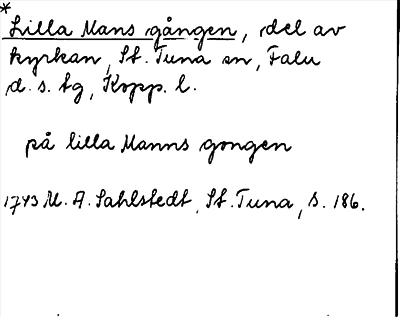 *
Lilla Mans gången, del av
kyrkan, St. Tuna sn, Falu
d. s. tg, Kopp. l.
på lilla Manns gongen
1743 M. A. Sahlstedt, St. Tuna, s. 186.